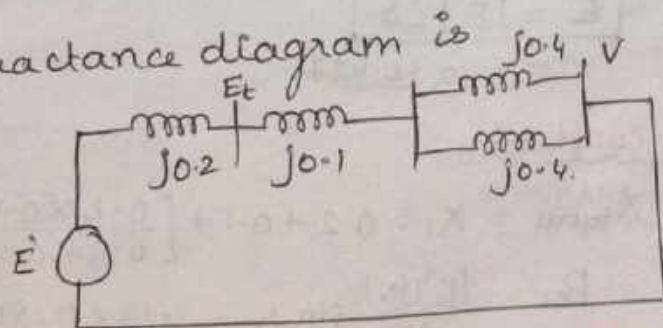 reactance diagram is
j0.4 V
Et
j0.2 j0.1
j0.4.
E'